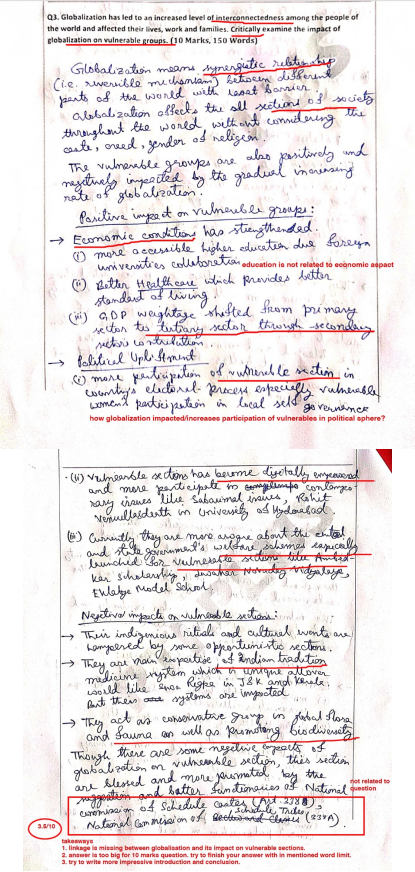 Q3. Globalization has led to an increased level of interconnectedness among the people of
the world and affected their lives, work and families. Critically examine the impact of
globalization on vulnerable groups. (10 Marks, 150 Words)
Globalization means synergistic relationship
(i.e. reversible mechanism) between different
parts of the world with least barrier.
Globalization affects the all sections of society
throughout the world without considering the
caste, creed, gender of religion.
The vulnerable groups are also positively and
negatively impacted by the gradual increasing
rate of globalization.
Positive impact on vulnerable groups:
→ Economic conditions has strengthended.
(i) more accessible higher education due foreign
universities collaboration education is not related to economic aspact
(ii) Better Healthcare which provides better
standard of living.
(iii) GDP weightage shifted from primary
sector to tertiary sector through secondary
sectors contribution.
→ Political Upliftment
(i) more participation of vulnerable section in
country's electoral process especially vulnerable
women participation in local self governance
how globalization impacted/increases participation of vulnerables in political sphere?
(ii) Vulnerable sections has become digitally empowered
and more participate in contempo-
rary issues like Sabarimal issues, Rohit
Venulla death in University of Hyderabad.
(iii) Currently they are more aware about the central
and state government's welfare schemes especially
launched for vulnerable sections like Ambed-
kar Scholarship, Jawahar Navoday Vidyalaya,
Eklavya Model School.
Negative impacts on vulnerable sections:
→ Their indigenious rituals and cultural events are
hampered by some opportunistic sections.
→ They are main expertise of Indian tradition
medicine system which is unique allover
world like Sowa Rigpa in J&K and Kerala.
But their systems are impacted
→ They act as conservative group in global flora
and fauna as well as promoting biodiversity
Though there are some negative impacts of
globalization on vulnerable section, this section
are blessed and more promoted by the
suggestion and better functionaries of National
not related to
question
commission of Schedule castes (Art. 338),
National Commission of Schedule Tribes (338A).
3.5/10
takeaways
1. linkage is missing between globalisation and its impact on vulnerable sections.
2. answer is too big for 10 marks question. try to finish your answer with in mentioned word limit.
3. try to write more impressive introduction and conclusion.